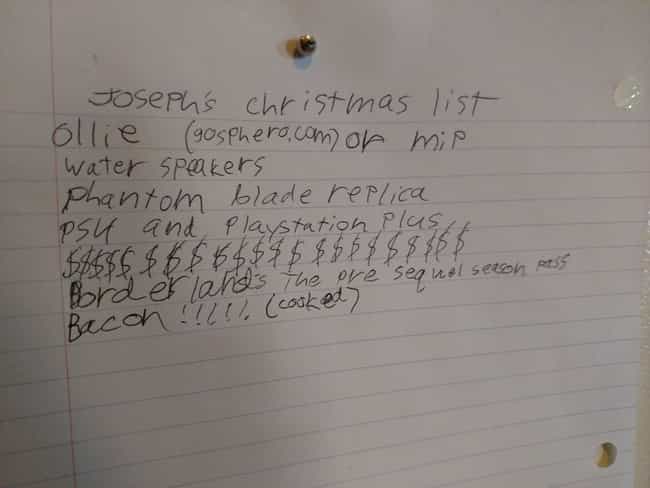 Joseph's christmas list
Ollie (gosphero.com) or mip
water speakers
Phantom blade replica
PS4 and Playstation Plus
$$$$$ $ $ $ $ $ $ $ $ $ $ $ $ $ $ $ $ $ $
Borderland's The pre sequel season pass
Bacon !!!!!. (cooked)